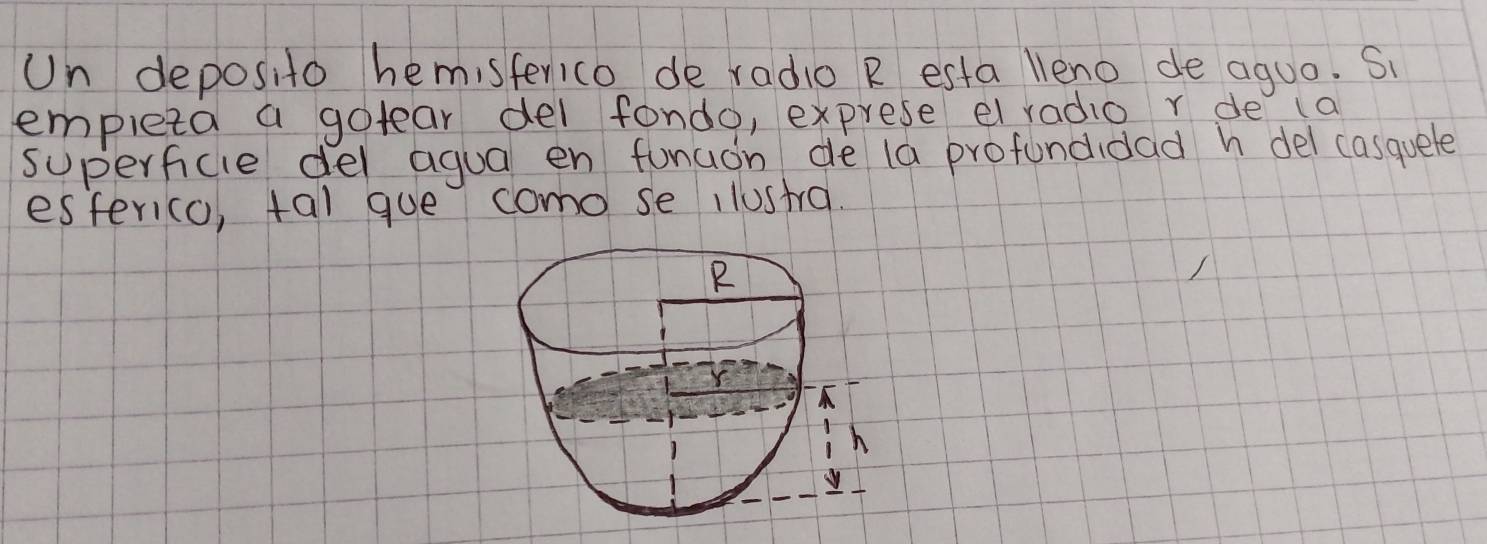 Un deposito hemisferico de radio R esta lleno de agua. Si
empieza a gotear del fondo, exprese el radio r de la
superficie del agua en función de la profundidad h del casquete
esferico, tal que como se ilustra.
R
r
h